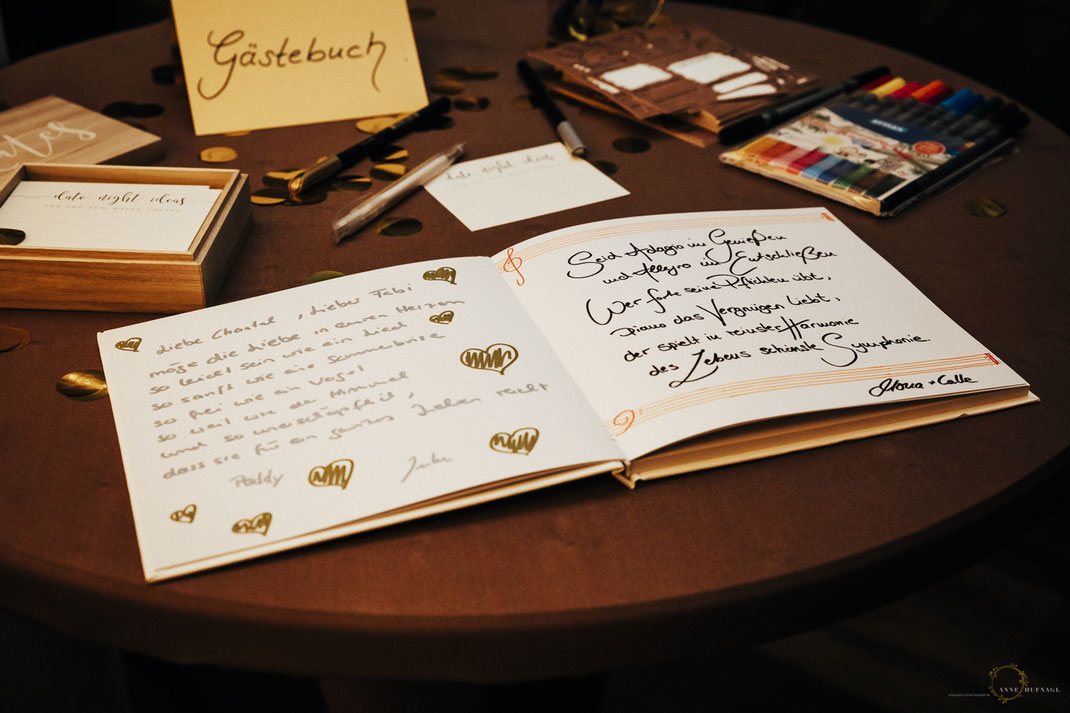 Gästebuch
date night ideas
FOR THE NEW HAPPY COUPLE
date night ideas
Liebe Chantal, lieber Febi
möge die Liebe in euren Herzen
so leicht sein wie ein Lied
so sanft wie eine Sommerbrise
so frei wie ein Vogel
so weit wie der Himmel
und so unerschöpflich,
dass sie für ein ganzes Leben reicht
Paddy
Seid Adagio im Genießen
und Allegro im Entschließen
Wer forte seine Pflichten übt,
piano das Vergnügen liebt,
der spielt in reinster Harmonie
des Lebens schönste Symphonie.
+ Calle
ANNE HUFNAGL